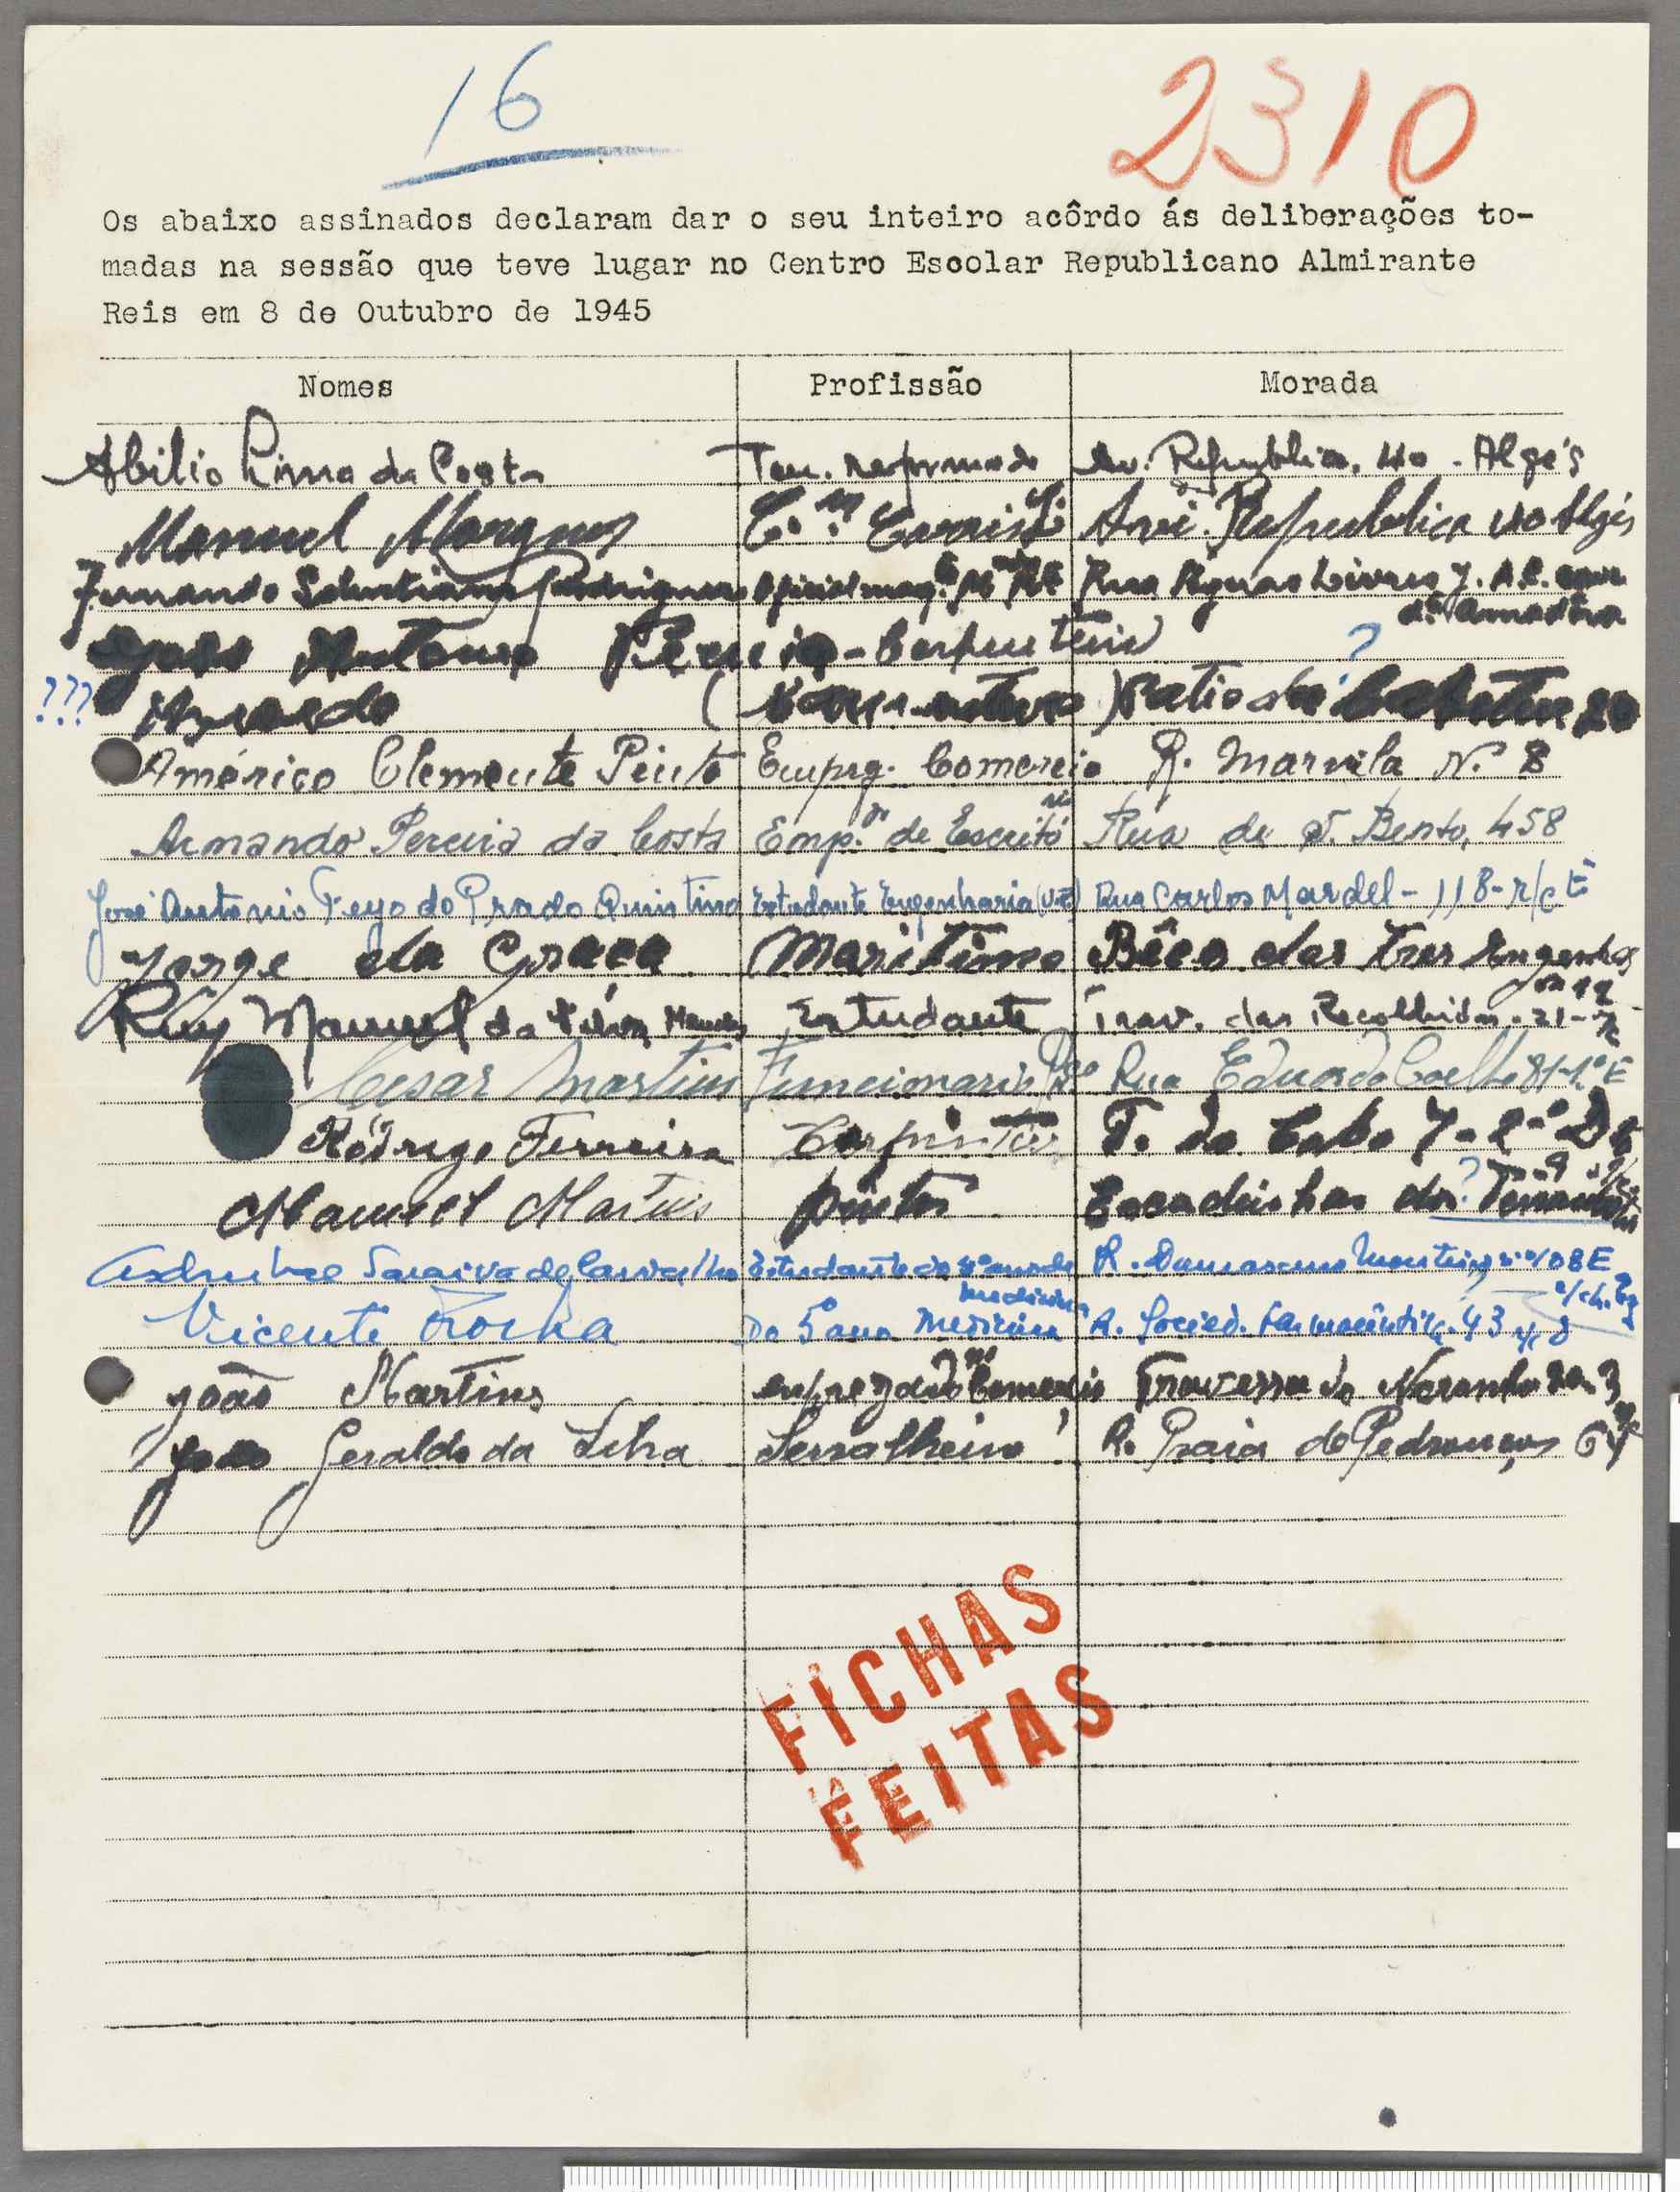 16
2310
Os abaixo assinados declaram dar o seu inteiro acôrdo ás deliberações to-
madas na sessão que teve lugar no Centro Escolar Republicano Almirante
Reis em 8 de Outubro de 1945
Nomes Profissão Morada
Abilio Lima da Costa Ten. reformado Av. Republica, 40 - Algés
Manuel Marques Av. Republica 40 Algés
Fernando Salustiano Rodrigues Rua Aguas Livres
da Amadora
João Antonio Pereira - Carpinteiro ?
??? Azevedo ( ) Patio da
Américo Clemente Pinto Empreg. Comercio R. Marvila N. 8
Armando Pereira da Costa Emp. de Escritório Rua de S. Bento, 458
José Antonio Feyo do Prado Quintino Estudante Engenharia Rua Carlos Mardel - 118 - r/c E
Jorge da Graça Maritimo Bêco das Tres Engenhos
Ruy Manuel da Silva Mendes Estudante Trav. das Recolhidas - 21 -
Cesar Martins Funcionario Pco Rua Eduardo Coelho 81-1º E
Rodrigo Ferreira Carpinteiro T. do Cabo 7 - 2º D
Manuel Martins pintor Escadinhas das ?
Asdrubal Saraiva de Carvalho Estudante do 4º ano de medicina R. Damasceno Monteiro nº 108 E
Vicente Rocha Do 5º ano Medicina R. Socied. Farmacêutica 43
João Martins empregado Comercio Travessa do Noronha 20-3
João Geraldo da Silva Serralheiro R. Praia de Pedrouços 64
FICHAS
FEITAS